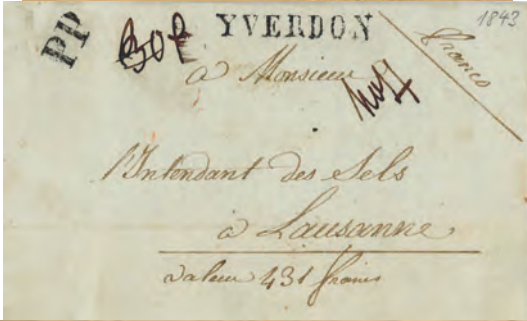 PP YVERDON 1843
franco
à Monsieur
l'Intendant des Sels
à Lausanne
valeur 431 francs